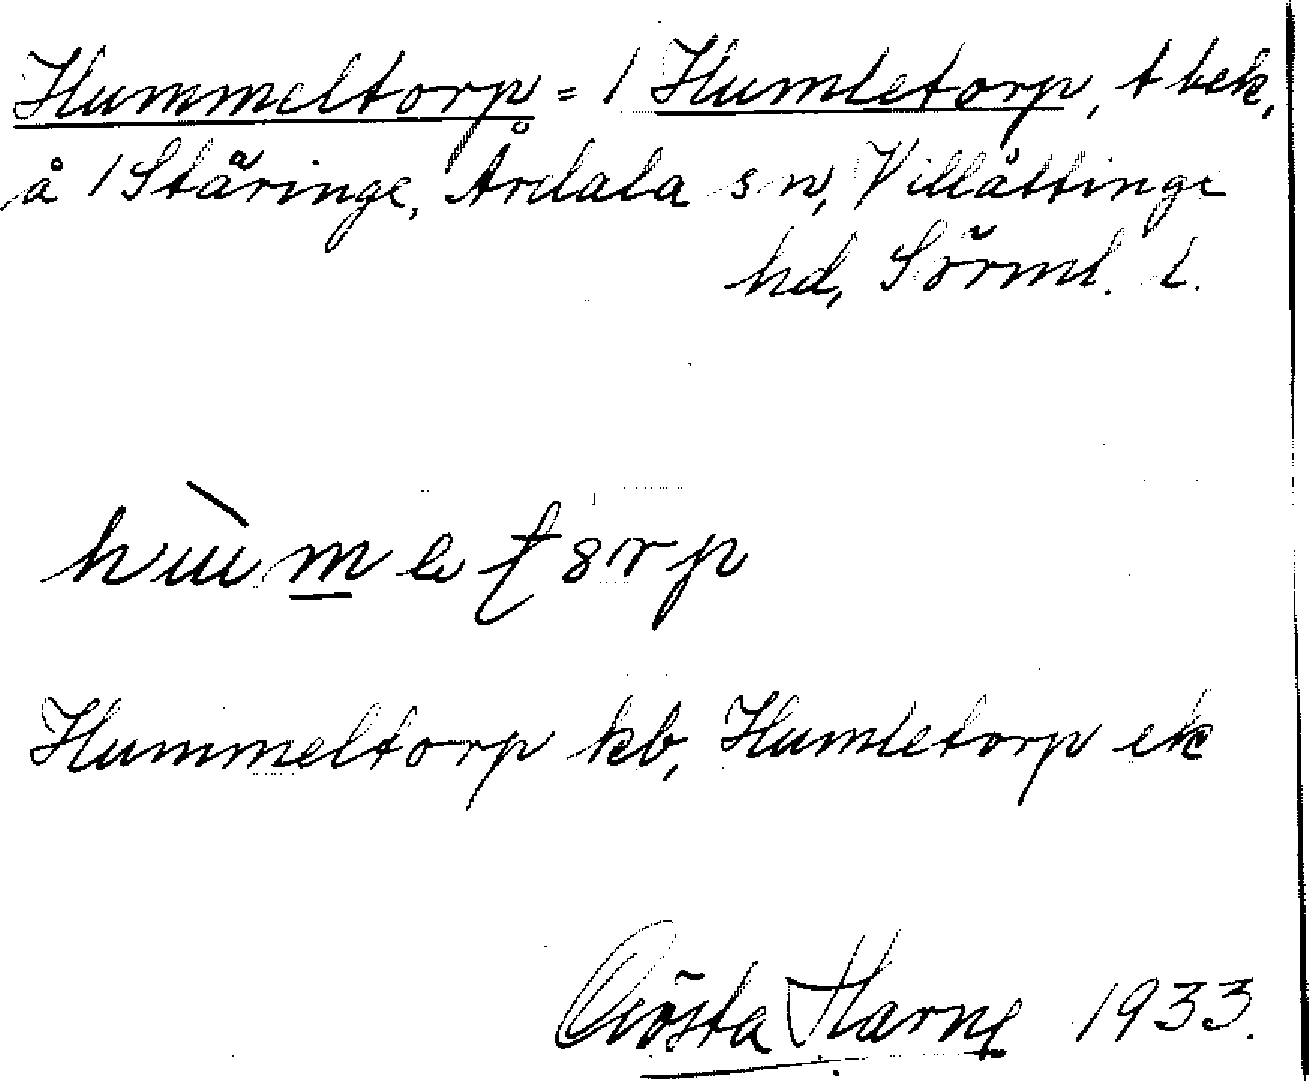 Hummeltorp = 1 Humletorp, t bek,
å 1 Stäringe, Årdala sn, Villåttinge
hd, Sörml. l.
Hummeltorp kb, Humletorp ek
Gösta Harne 1933.